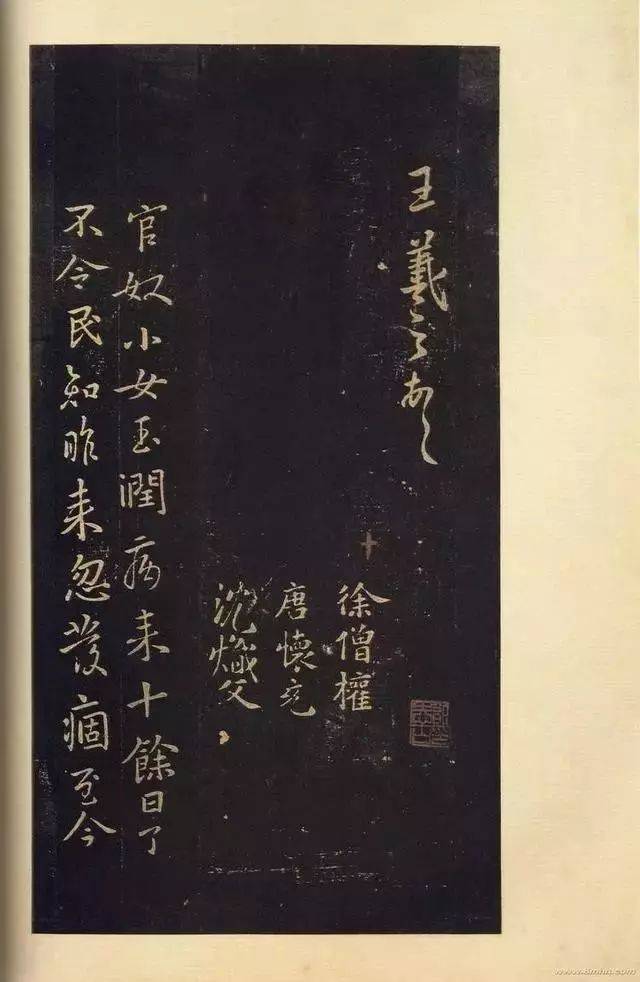 王羲之頓
徐僧權
唐懷充
沈熾文
官奴小女玉潤病來十餘日了
不令民知昨來忽發痼至今
www.8mhh.com